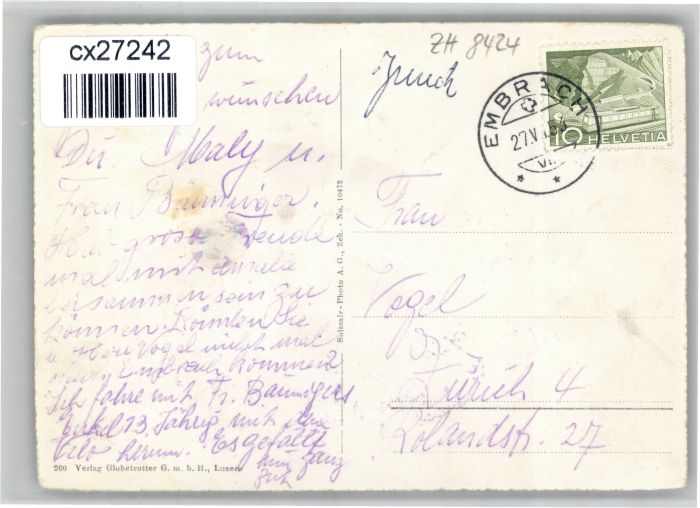 cx27242
zum
wünschen
Dir. Maly u.
Frau Bänninger.
grosse Freude
mal mit
beisammen sein zu
können. Könnten Sie
u Herr Vogel nicht mal
nach Embrach kommen?
Ich fahre mit Fr. Bänningers
Enkel 13. Jährig mit dem
Velo herum. Es gefällt
ihm ganz
gut
260 Verlag Globetrotter G. m. b. H., Luzern
Salamir-Photo A. G., Zch. - No. 10472
ZH 8424
EMBRACH
27.V
10 HELVETIA
Frau
Vogel
Zürich 4
Rolandstr. 27